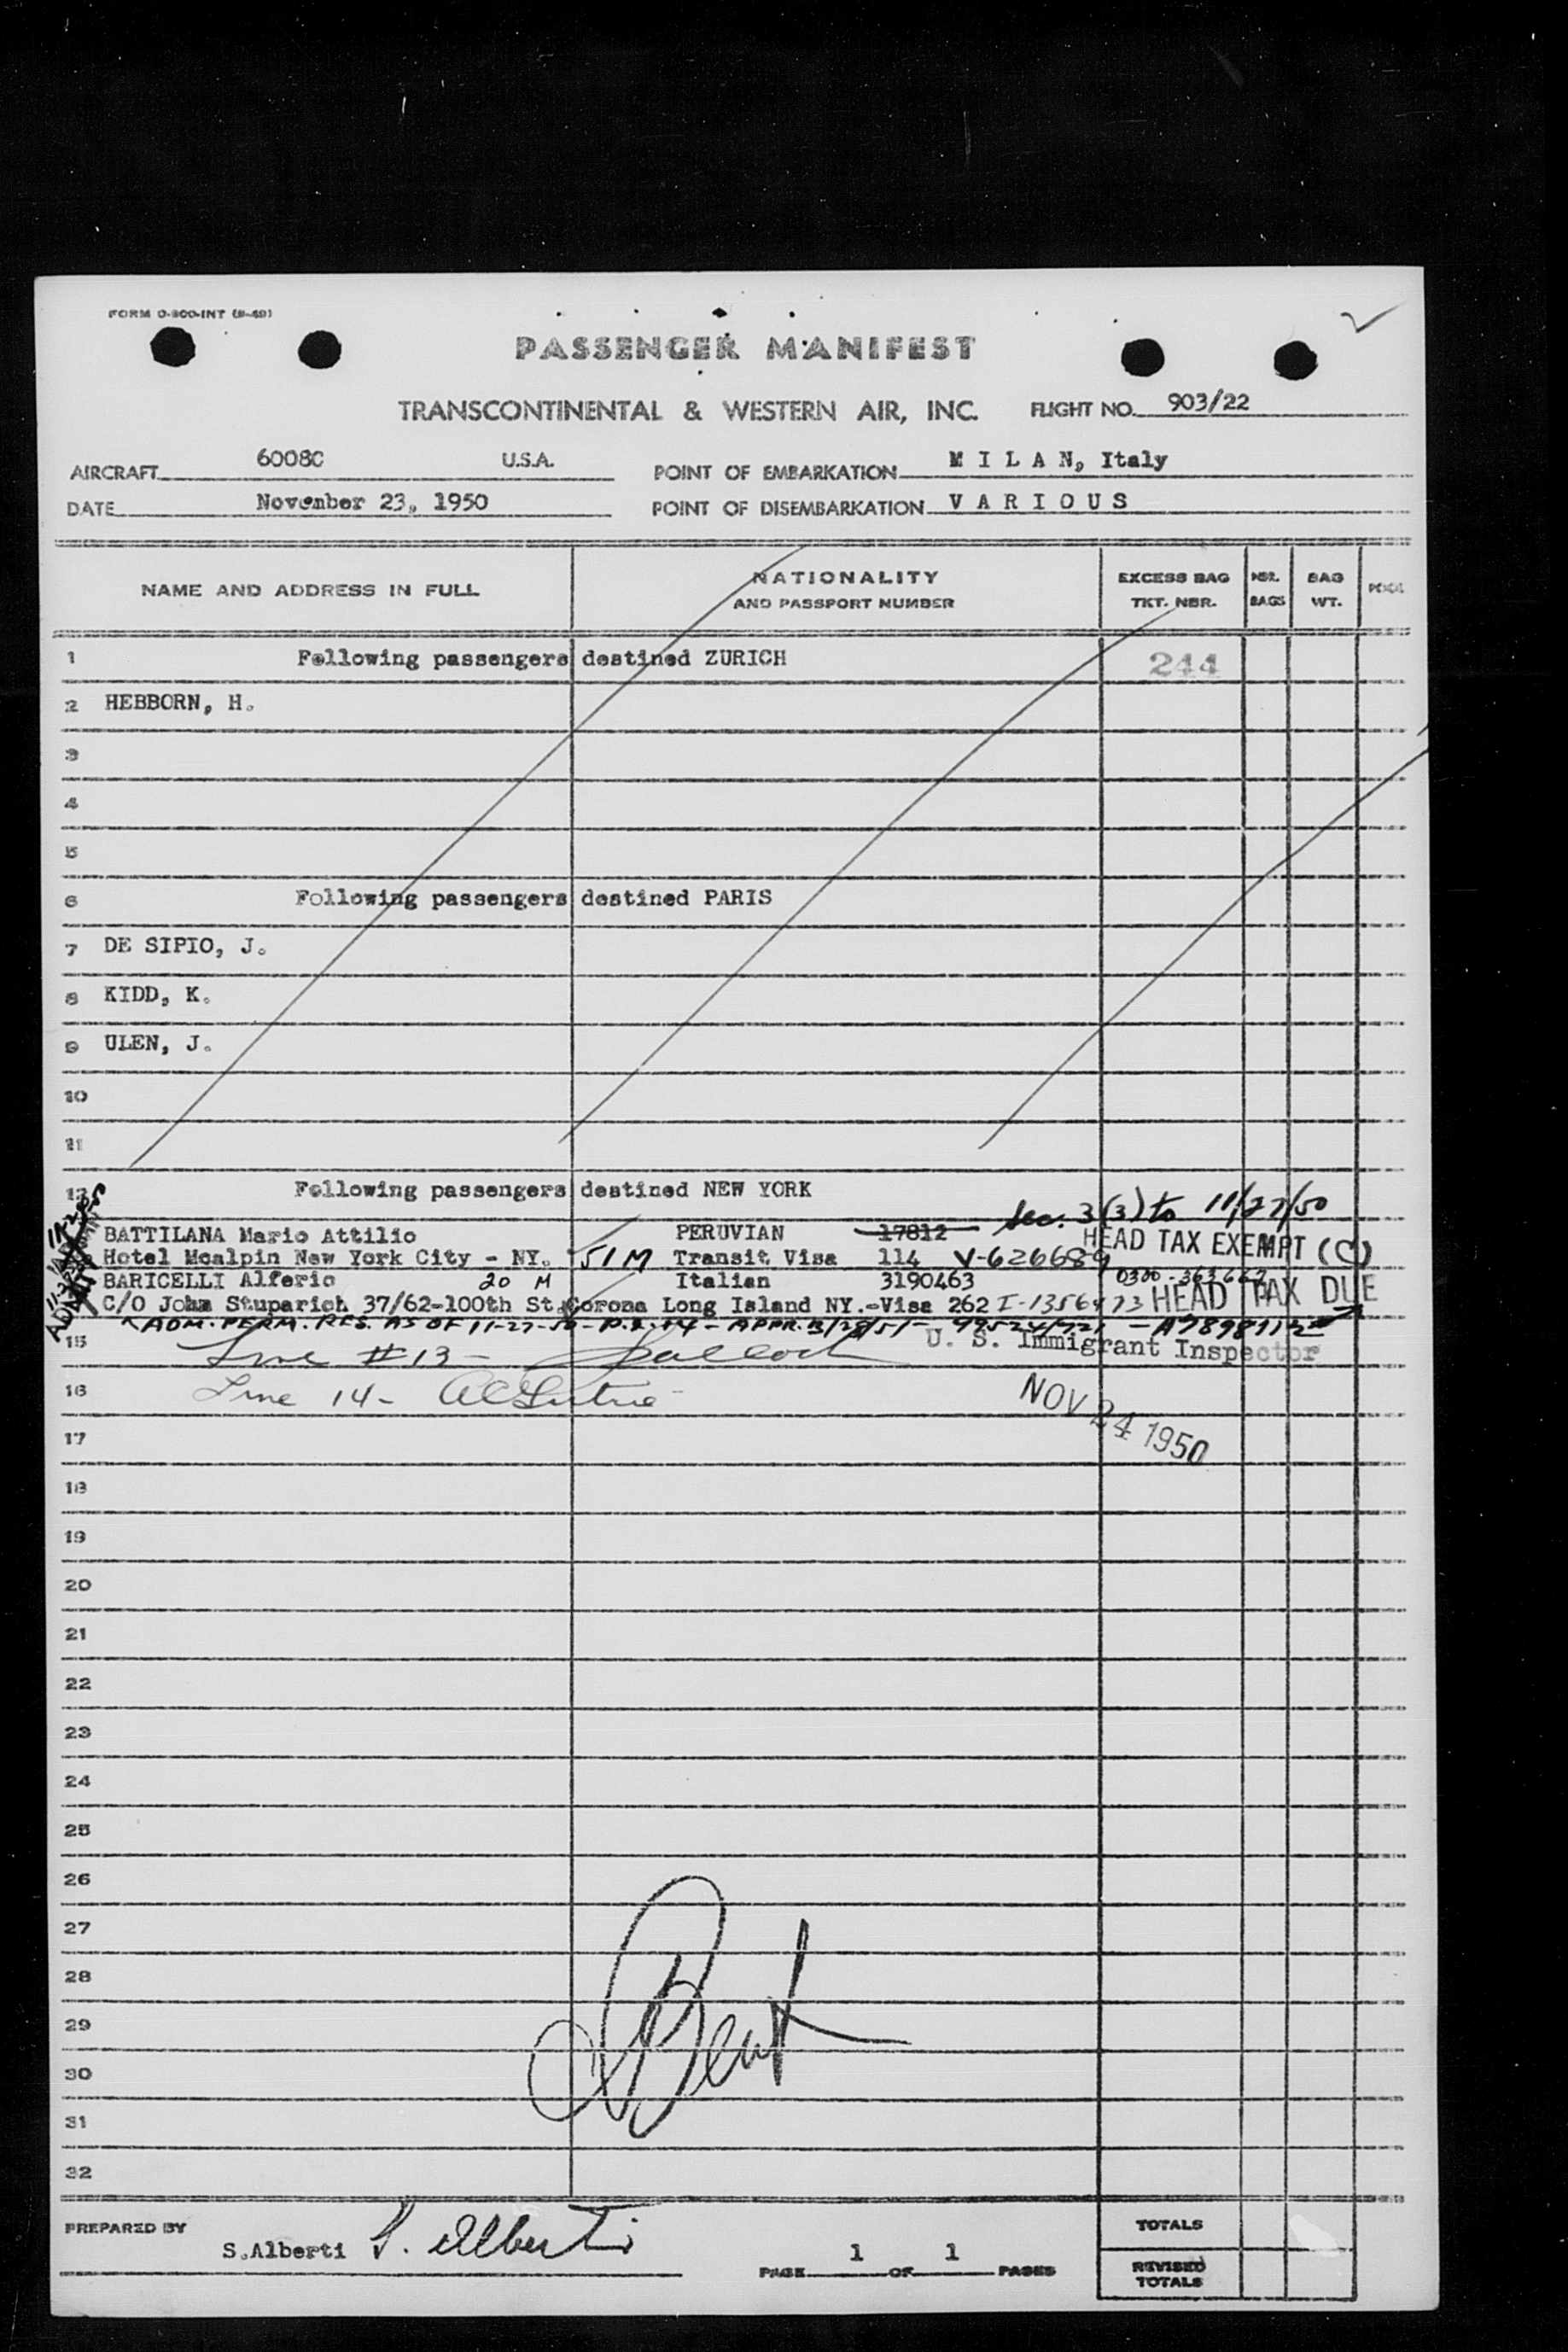 FORM O-800-INT (8-49)
PASSENGER MANIFEST
TRANSCONTINENTAL & WESTERN AIR, INC. FLIGHT NO. 903/22
AIRCRAFT 6008C U.S.A. POINT OF EMBARKATION M I L A N, Italy
DATE November 23, 1950 POINT OF DISEMBARKATION V A R I O U S
NAME AND ADDRESS IN FULL NATIONALITY AND PASSPORT NUMBER EXCESS BAG TKT. NBR. NBR. BAGS BAG WT.
1 Following passengers destined ZURICH 244
2 HEBBORN, H.
3
4
5
6 Following passengers destined PARIS
7 DE SIPIO, J.
8 KIDD, K.
9 ULEN, J.
10
11
12 Following passengers destined NEW YORK
Sec. 3(3) to 11/27/50
BATTILANA Mario Attilio PERUVIAN 17812 HEAD TAX EXEMPT (C)
Hotel Mcalpin New York City - NY. 51 M Transit Visa 114 V-626689
BARICELLI Alferio 20 M Italian 3190463 0300-
C/O John Stuparich 37/62-100th St. Corona Long Island NY.-Visa 262 I-1356473 HEAD TAX DUE
ADM. PERM. RES. AS OF 11-27-50 - P.L. - APPR. 3/28/51 -
15 Line #13 - U. S. Immigrant Inspector
16 Line 14 -
NOV 24 1950
17
18
19
20
21
22
23
24
25
26
27
28
29
30
31
32
PREPARED BY S.Alberti S. Alberti
PAGE 1 OF 1 PAGES
TOTALS
REVISED TOTALS